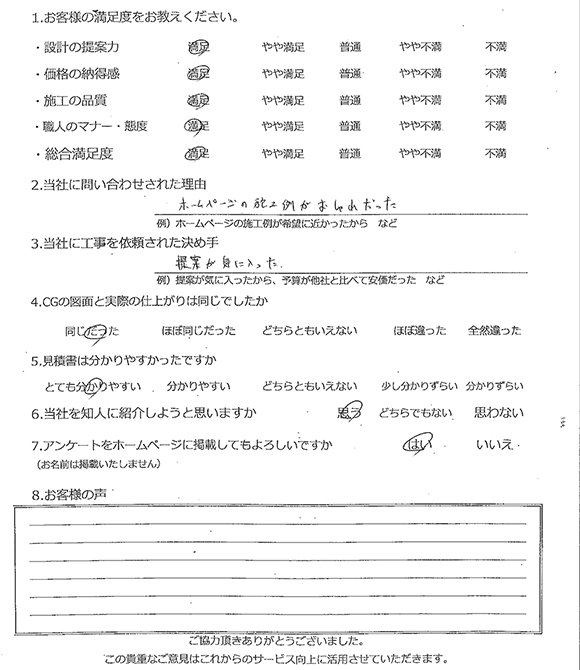 1.お客様の満足度をお教えください。
・設計の提案力 満足 やや満足 普通 やや不満 不満
・価格の納得感 満足 やや満足 普通 やや不満 不満
・施工の品質 満足 やや満足 普通 やや不満 不満
・職人のマナー・態度 満足 やや満足 普通 やや不満 不満
・総合満足度 満足 やや満足 普通 やや不満 不満
2.当社に問い合わせされた理由
ホームページの施工例がおしゃれだった
例）ホームページの施工例が希望に近かったから など
3.当社に工事を依頼された決め手
提案が気に入った.
例）提案が気に入ったから、予算が他社と比べて安価だった など
4.CGの図面と実際の仕上がりは同じでしたか
同じだった ほぼ同じだった どちらともいえない ほぼ違った 全然違った
5.見積書は分かりやすかったですか
とても分かりやすい 分かりやすい どちらともいえない 少し分かりずらい 分かりずらい
6.当社を知人に紹介しようと思いますか 思う どちらでもない 思わない
7.アンケートをホームページに掲載してもよろしいですか はい いいえ
（お名前は掲載いたしません）
8.お客様の声
ご協力頂きありがとうございました。
この貴重なご意見はこれからのサービス向上に活用させていただきます。